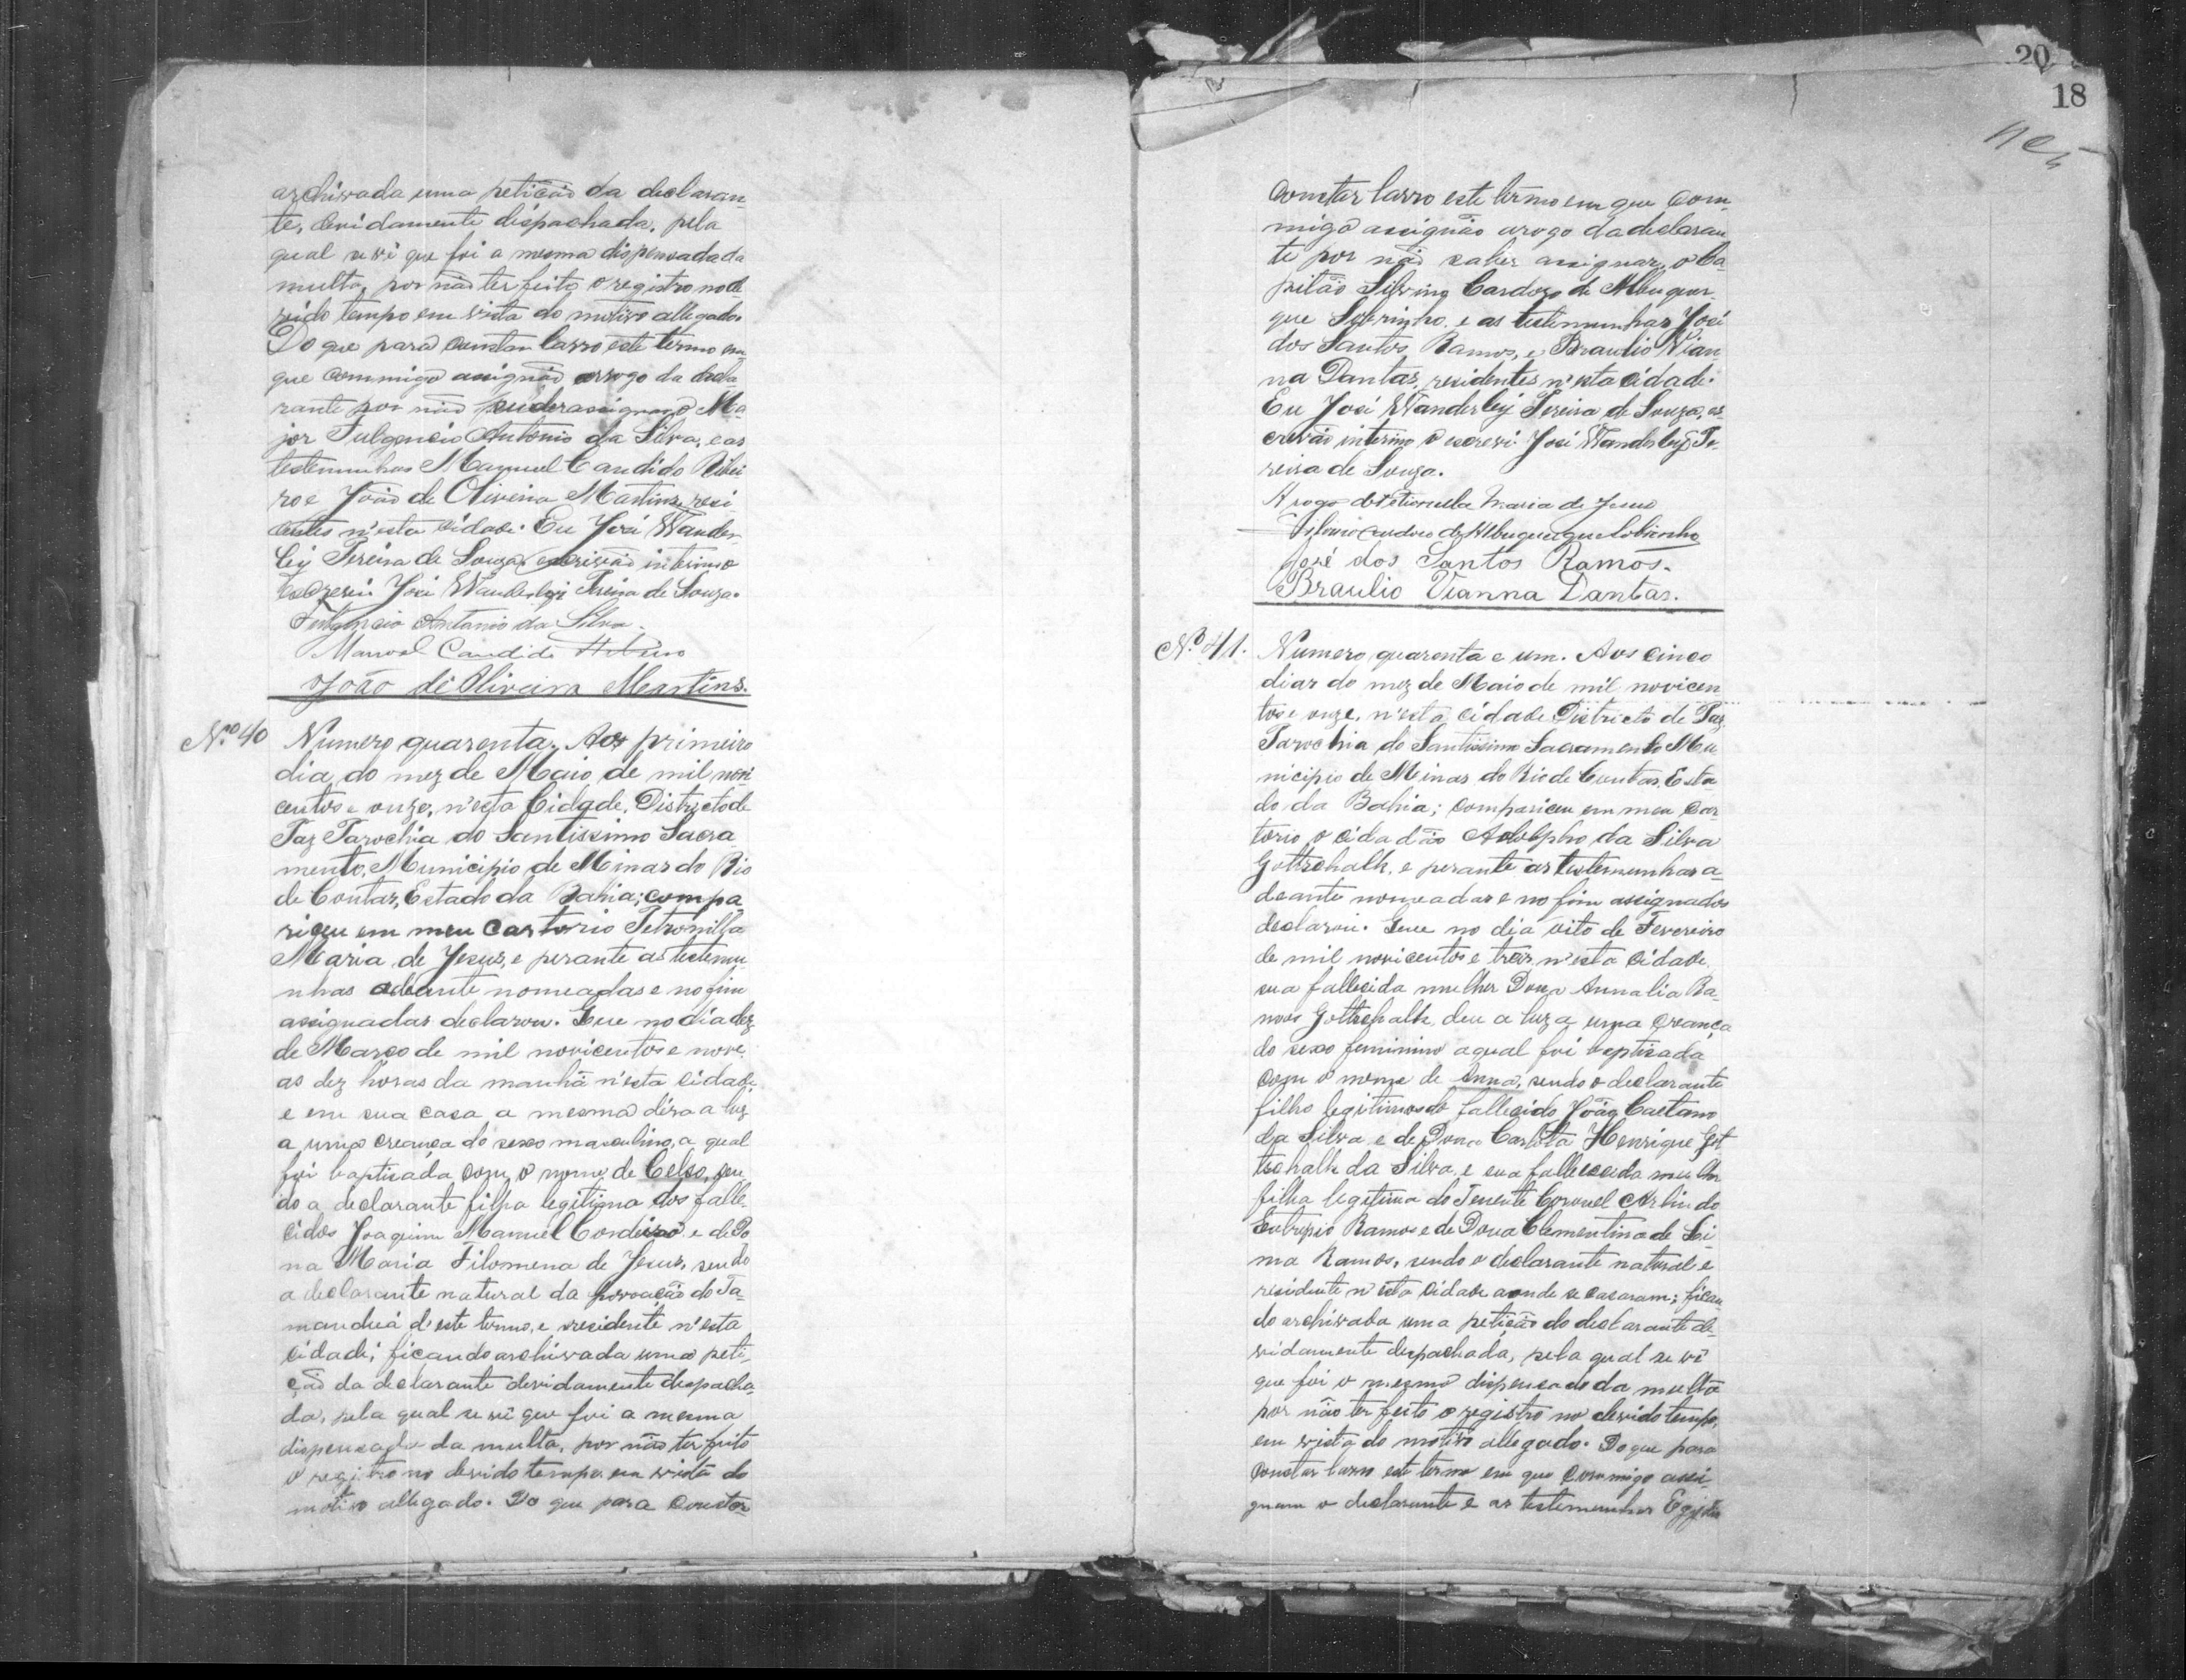 archivada uma petição da declaran-
te, devidamente dispachada, pela
qual se vê que foi a mesma dispensada da
multa, por não ter feito o registro no de-
vido tempo em vista do motivo allegado.
Do que para constar lavro este termo em
que commigo assignão arrogo da decla-
rante por não puder assignar o Ma-
jor Fulgencio Antonio da Silva, e as
testemunhas Manuel Candido Ribei-
ro e João de Oliveira Martins, resi-
dentes n'esta cidade. Eu José Wander-
ley Pereira de Souza, escrivão interino
o escrevi. José Wanderley Pereira de Souza.
Fulgencio Antonio da Silva.
Manoel Candido Ribeiro
João de Oliveira Martins.
Nº 40
Numero quarenta. Aos primeiro
dia do mez de Maio de mil novi
centos e onze, n'esta Cidade, Districto de
Paz Parochia do Santissimo Sacra
mento, Municipio de Minas do Rio
de Contas, Estado da Bahia; compa
riceu em meu Cartorio Petronilla
Maria de Jesus, e perante as testemu-
nhas adeante nomeadas e no fim
assignadas declarou. Que no dia dez
de Março de mil novicentos e nove,
as dez horas da manhã n'esta cidade,
e em sua casa a mesma déra a luz
a uma creança do sexo masculino, a qual
foi baptisada com o nome de Celso, sen
do a declarante filha legitima dos falle-
cidos Joaquim Manuel Cordeiro e de Do
na Maria Filomena de Jesus, sendo
a declarante natural da povoação do Ta-
manduá d'este termo, e residente n'esta
cidade; ficando archivada uma peti-
ção da declarante devidamente despacha-
da, pela qual se vê que foi a mesma
dispensada da multa, por não ter feito
o registro no devido tempo em vista do
motivo allegado. Do que para constar
20
18
constar lavro este termo em que com-
migo assignão arogo da declaran
te por não saber assignar, o Ca-
pitão Silvino Cardozo de Albuquer-
que Sobrinho, e as testemunhas José
dos Santos Ramos, e Braulio Vian-
na Dantas, residentes n'esta cidade.
Eu José Wanderley Pereira de Souza, es-
crivão interino o escrevi. José Wanderley Pe-
reira de Souza.
Arogo de Petronilla Maria de Jesus
Silvino Cardozo de Albuquerque Sobrinho
José dos Santos Ramos.
Braulio Vianna Dantas.
Nº 41.
Numero quarenta e um. Aos cinco
dias do mez de Maio de mil novicen
tos e onze, n'esta cidade Districto de Paz,
Parochia do Santissimo Sacramento Mu
nicipio de Minas do Rio de Contas, Esta
do da Bahia; compariceu em meu Car
torio o cidadão Adolpho da Silva
Gottschalk, e perante as testemunhas a-
deante nomeadas e no fim assignados
declarou. Que no dia oito de Fevereiro
de mil novicentos e tres, n'esta cidade,
sua fallecida mulher Dona Annalia Ra-
mos Gottschalk, deu a luz a uma creança
do sexo feminino a qual foi baptisada
com o nome de Anna, sendo o declarante
filho legitimo do fallecido João Caetano
da Silva e de Dona Carlota Henrique Got
tschalk da Silva, e sua fallescida mulher
filha legitima do Tenente Coronel Arlindo
Eutropio Ramos e de Dona Clementina de Li-
ma Ramos, sendo o declarante natural e
residente n'esta cidade aonde se casaram; fican
do archivada uma petição do declarante de-
vidamente despachada, pela qual se vê
que foi o mesmo dispensado da multa
por não ter feito o registro no devido tempo,
em vista do motivo allegado. Do que para
constar lavro este termo em que commigo assi-
gnam o declarante e as testemunhas Egydio